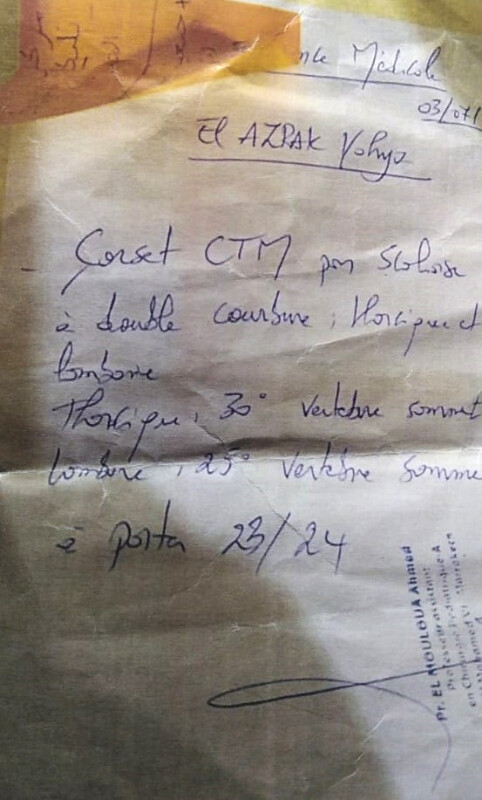 Médicale
03/07/
El AZRAK Yahya
Corset CTM pour Scoliose
à double courbure : thoracique et
lombaire
Thoracique : 30° vertèbre sommet
lombaire : 25° vertèbre somme
à porter 23/24
Pr. EL MOULOUA Ahmed
Professeur assistant